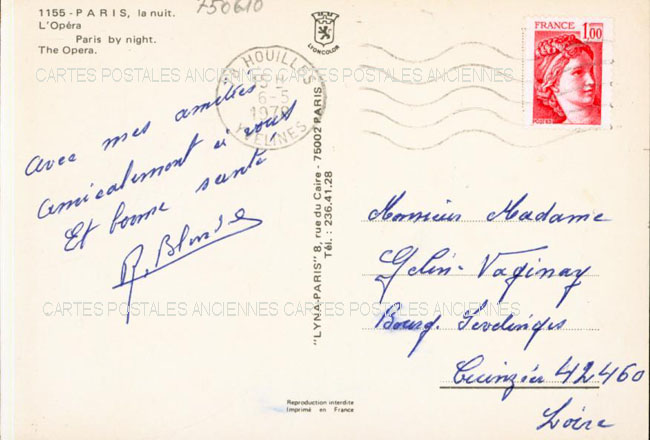 750610
1155 - PARIS, la nuit.
L'Opéra
Paris by night.
The Opera.
LYONCOLOR
FRANCE
1,00
HOUILLES
6-5
YVELINES
CARTES POSTALES ANCIENNES CARTES POSTALES ANCIENNES
avec mes amitiés
amicalement à vous
Et bonne santé
R.
"LYNA-PARIS" 8, rue du Caire - 75002 PARIS
Tél. : 236.41.28
Monsieur Madame
Gelin-Vaginay
Bourg. Sevelinges
Cuinzier 42460
Loire
CARTES POSTALES ANCIENNES CARTES POSTALES ANCIENNES
Reproduction interdite
Imprimé en France